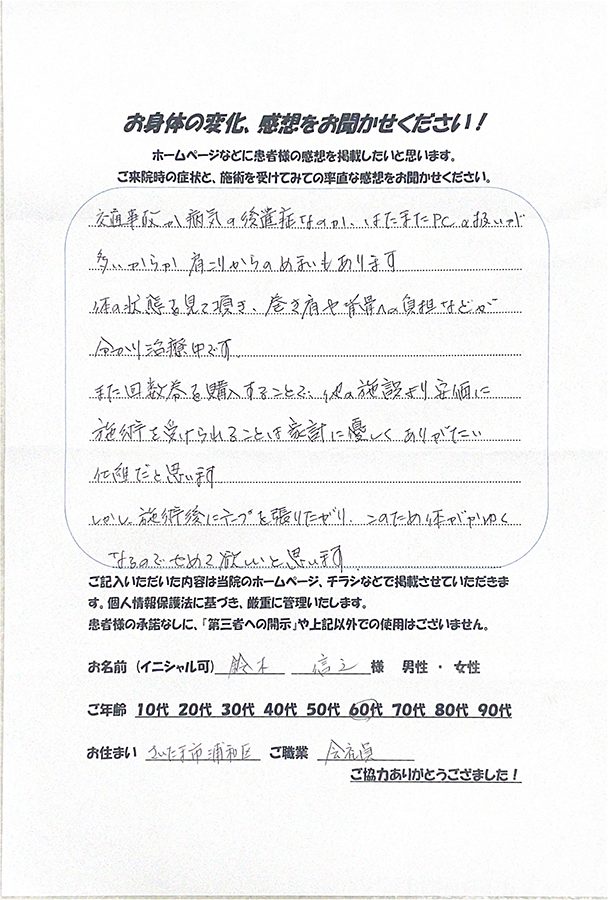 お身体の変化、感想をお聞かせください！
ホームページなどに患者様の感想を掲載したいと思います。
ご来院時の症状と、施術を受けてみての率直な感想をお聞かせください。
交通事故か病気の後遺症なのか、はたまたPCの扱いが
多いからか肩こりからのめまいもあります
体の状態を見て頂き、巻き肩や背骨への負担などが
分かり治療中です。
また回数券を購入することで、他の施設より安価に
施術を受けられることは家計に優しくありがたい
仕組だと思います
しかし、施術後にテープを張りたがり、このため体がかゆく
なるのでやめて欲しいと思います。
ご記入いただいた内容は当院のホームページ、チラシなどで掲載させていただきま
す。個人情報保護法に基づき、厳重に管理いたします。
患者様の承諾なしに、「第三者への開示」や上記以外での使用はございません。
お名前（イニシャル可） 鈴木 信之 様 男性 ・ 女性
ご年齢 10代 20代 30代 40代 50代 60代 70代 80代 90代
お住まい さいたま市浦和区 ご職業 会社員
ご協力ありがとうござました！